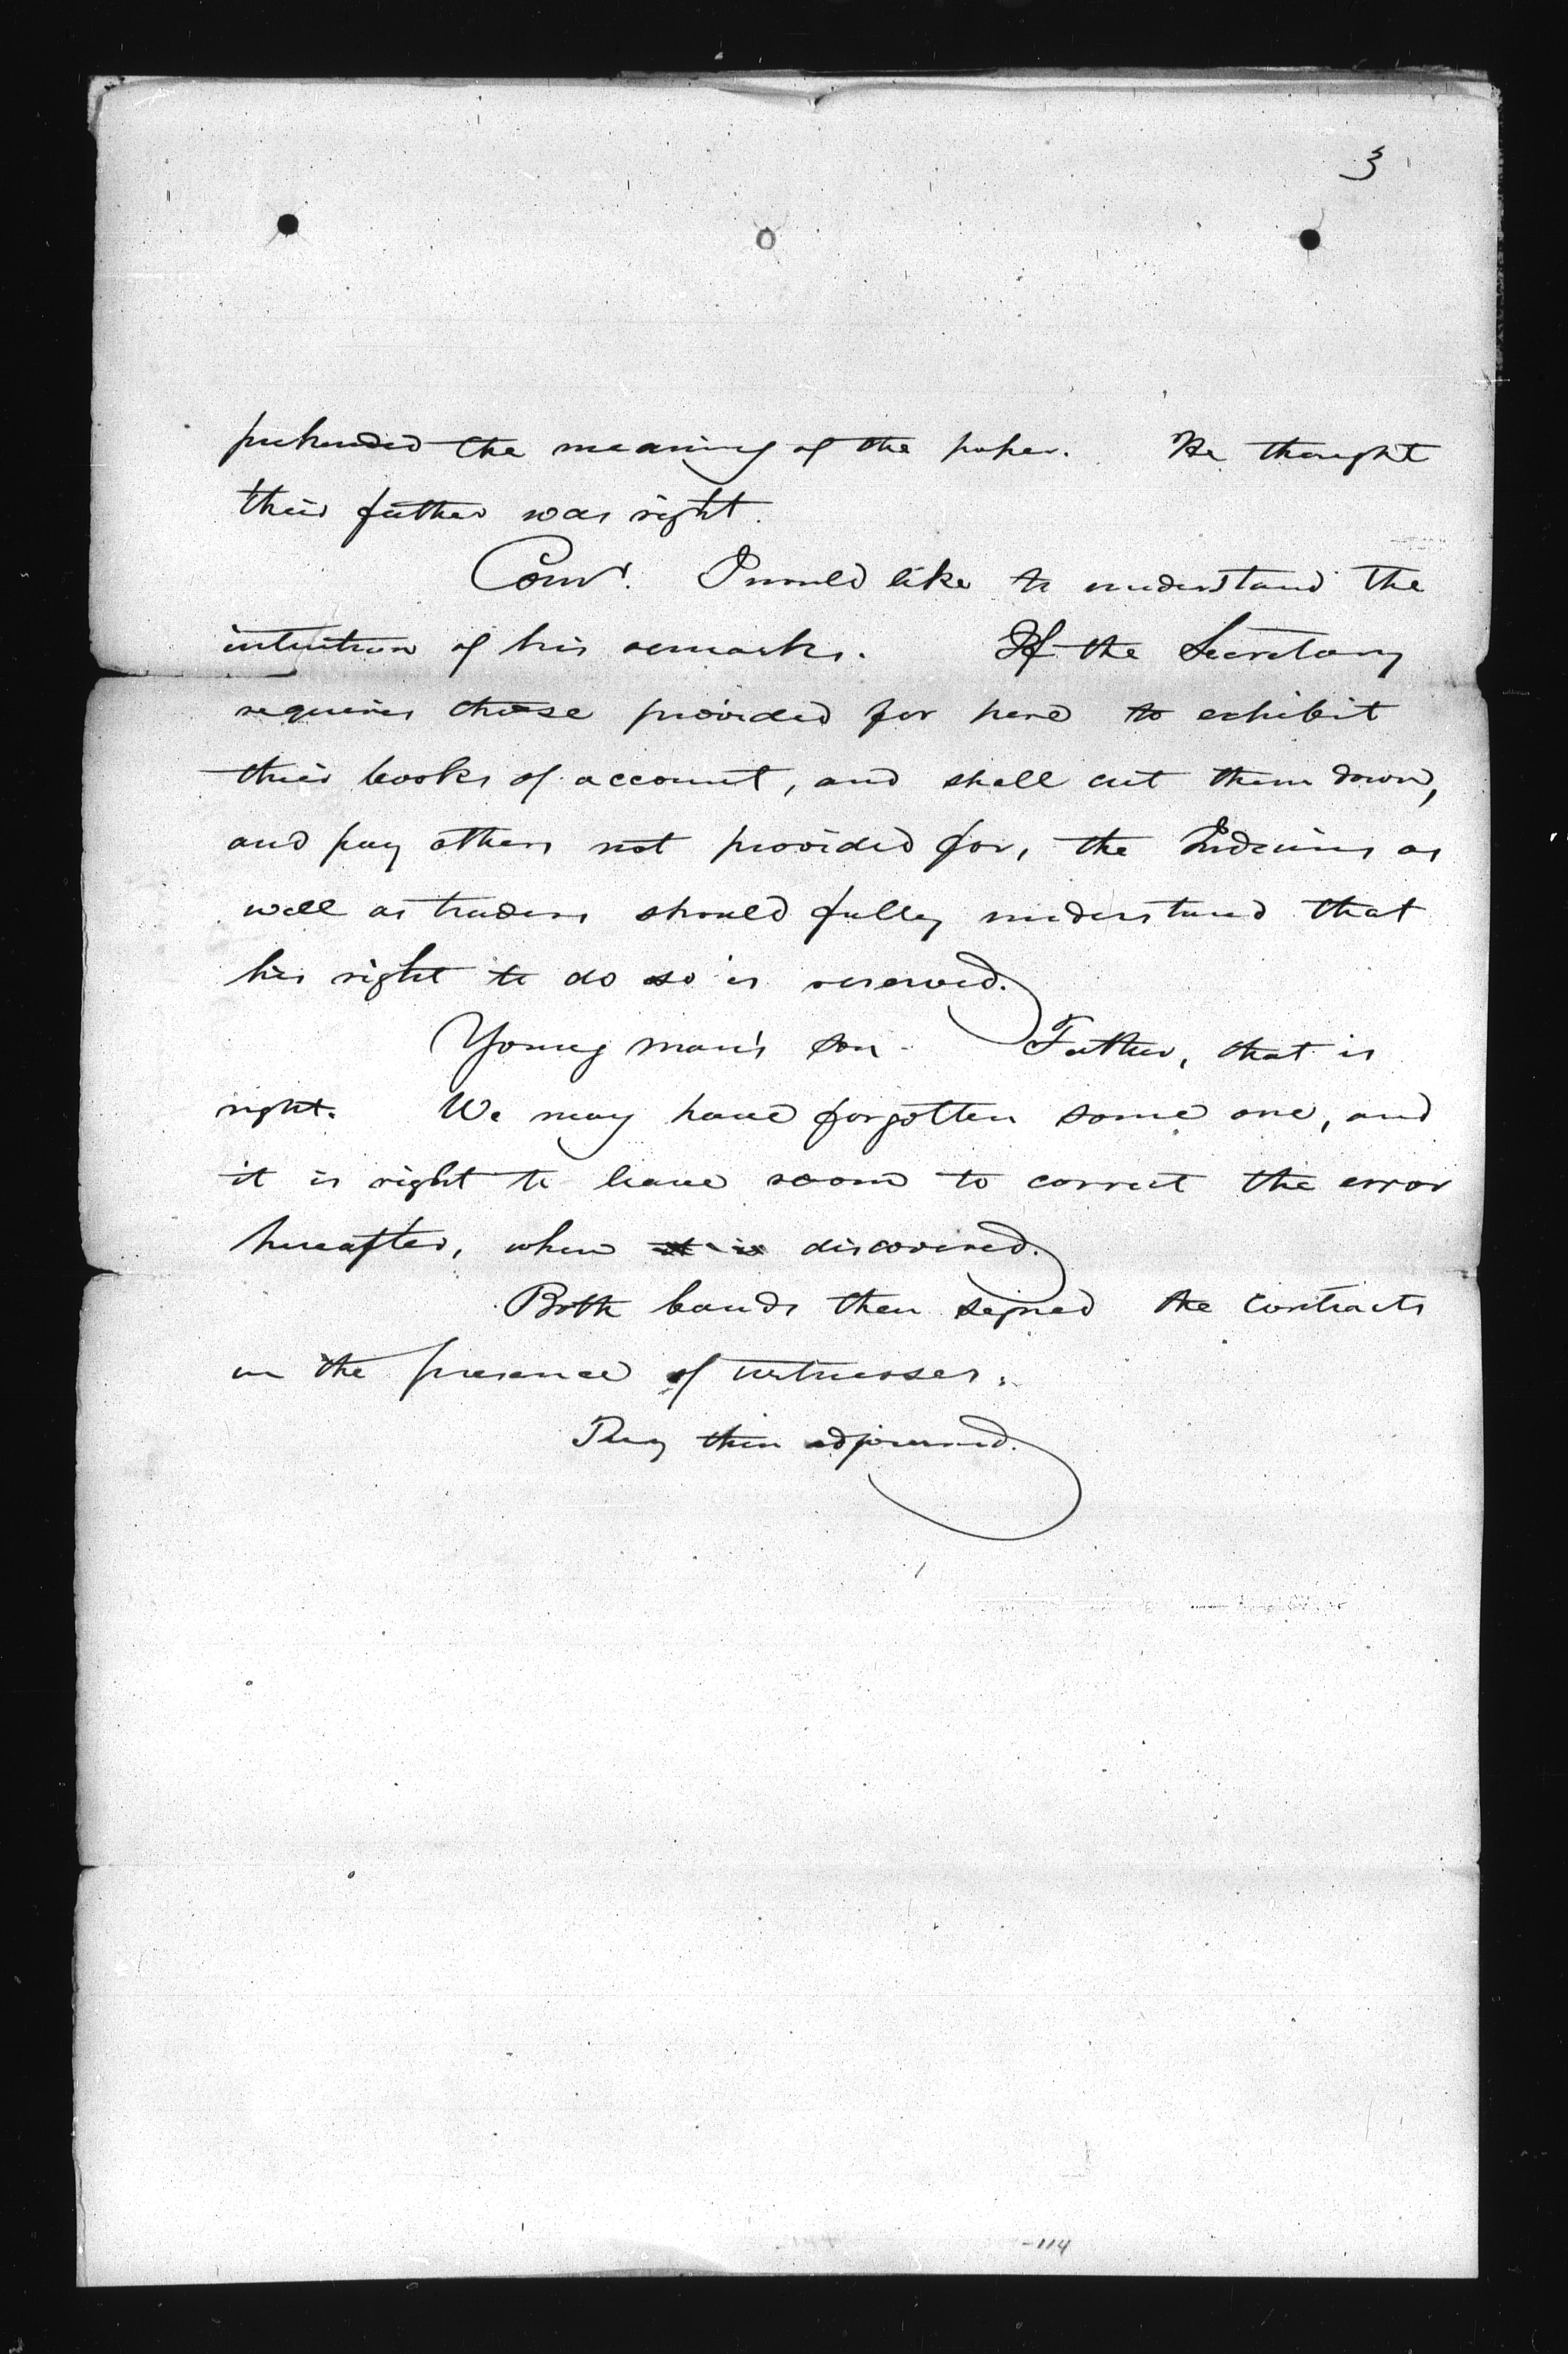 3
prehended the meaning of the paper. He thought
their father was right.
Comr. I would like to understand the
intention of his remarks. If the Secretary
requires those provided for here to exhibit
their books of account, and shall cut them down,
and pay others not provided for, the Indians as
well as traders should fully understand that
his right to do so is reserved.
Young man's son - Father, that is
right. We may have forgotten some one, and
it is right to leave room to correct the error
hereafter, when it is discovered.
Both bands then signed the contracts
in the presence of witnesses.
They then adjourned.
-114